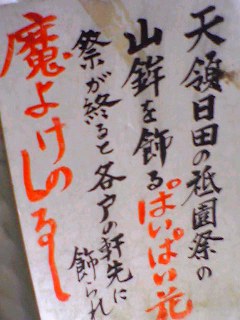 天領日田の祇園祭の
山鉾を飾るぱいぱい花
祭が終ると各戸の軒先に
飾られ
魔よけのしるし